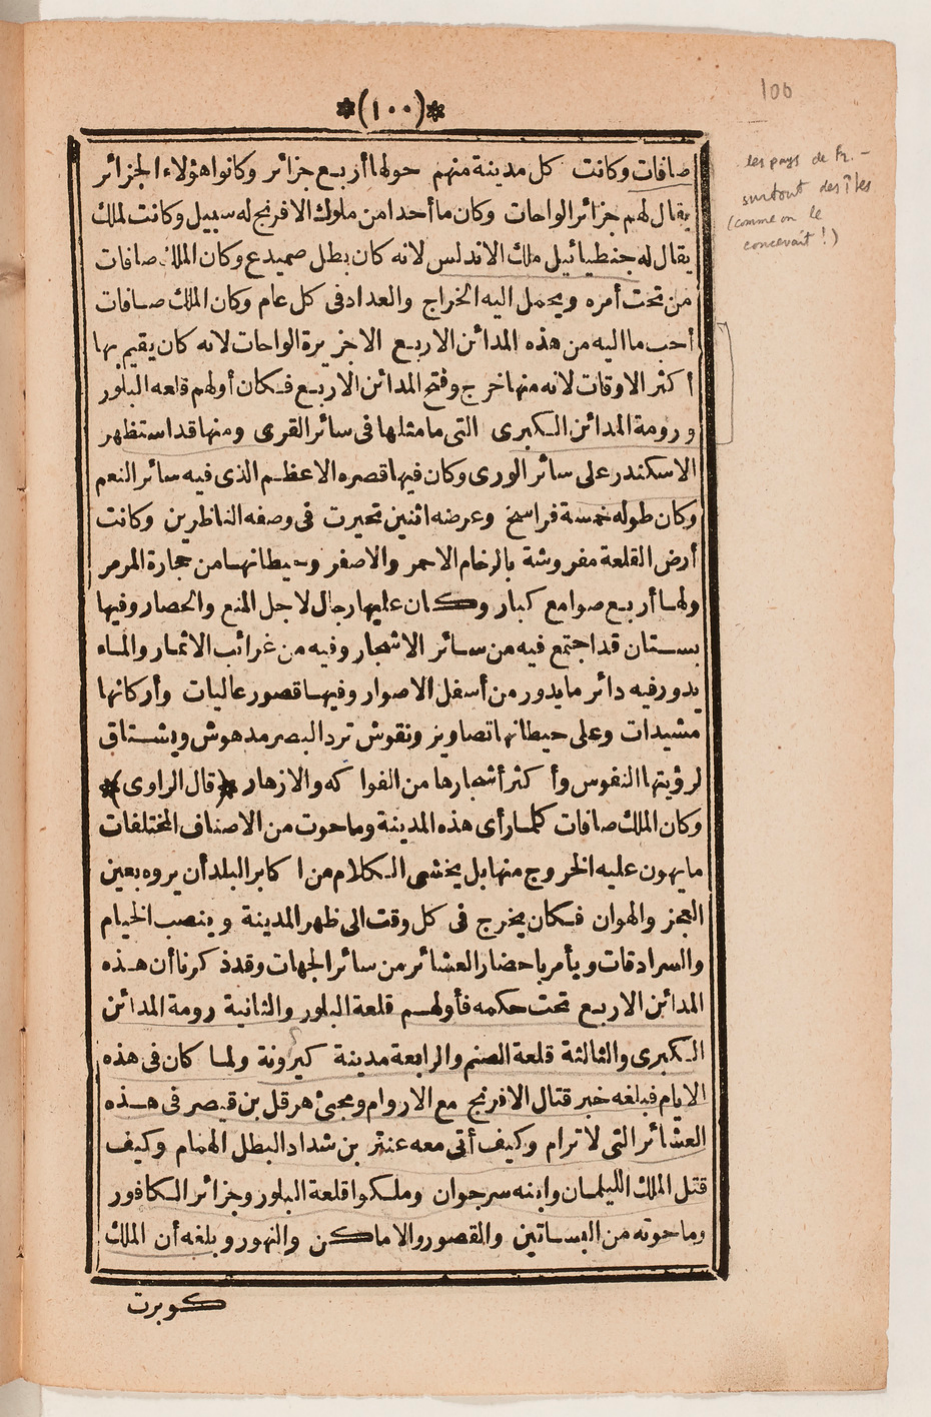 100
*(١٠٠)*
صافات وكانت كل مدينة منهم حولها أربع جزائر وكانوا هؤلاء الجزائر
يقال لهم جزائر الواحات وكان ما أحدا من ملوك الافرنج له سبيل وكانت لملك
يقال له جنطيائيل ملك الاندلس لانه كان بطل صميدع وكان الملك صافات
من تحت أمره ويحمل اليه الخراج والعداد فى كل عام وكان الملك صافات
أحب ما اليه من هذه المدائن الاربع الاخزيرة الواحات لانه كان يقيم بها
أكثر الاوقات لانه منها خرج وفتح المدائن الاربع فكان أولهم قلعه البلور
ورومة المدائن الكبرى التى ما مثلها فى سائر القرى ومنها قد استظهر
الاسكندر على سائر الورى وكان فيها قصره الاعظم الذى فيه سائر النعم
وكان طوله خمسة فراسخ وعرضه اثنين تحيرت فى وصفه الناظرين وكانت
أرض القلعة مفروشة بالرخام الاحمر والاصفر وحيطانها من حجارة المرمر
ولها أربع صوامع كبار وكان عليها رجال لاجل المنع والحصار وفيها
بستان قد اجتمع فيه من سائر الاشجار وفيه من غرائب الاثمار والماء
يدور فيه دائر ما يدور من أسفل الاصوار وفيها قصور عاليات وأركانها
مشيدات وعلى حيطانها تصاوير ونقوش ترد البصر مدهوش ويشتاق
لرؤيتها النفوس وأكثر أشجارها من الفواكه والازهار *(قال الراوى)*
وكان الملك صافات كلما رأى هذه المدينة وما حوت من الاصناف المختلفات
ما يهون عليه الخروج منها بل يخشى الكلام من اكابر البلد أن يروه بعين
العجز والهوان فكان يخرج فى كل وقت الى ظهر المدينة وينصب الخيام
والسرادقات ويأمر باحضار العشائر من سائر الجهات وقد ذكرنا أن هذه
المدائن الاربع تحت حكمه فأولهم قلعة البلور والثانية رومة المدائن
الكبرى والثالثة قلعة الصنم والرابعة مدينة كيرونة ولما كان فى هذه
الايام فبلغه خبر قتال الافرنج مع الاروام ومجئ هرقل بن قيصر فى هذه
العشائر التى لا ترام وكيف أتى معه عنتر بن شداد البطل الهمام وكيف
قتل الملك الليلمان وابنه سرجوان وملكوا قلعة البلور وجزائر الكافور
وما حوته من البساتين والقصور والاماكن والنهور وبلغه أن الملك
كوبرت
les pays de Fr. –
surtout des îles
(comme on le
concevait !)